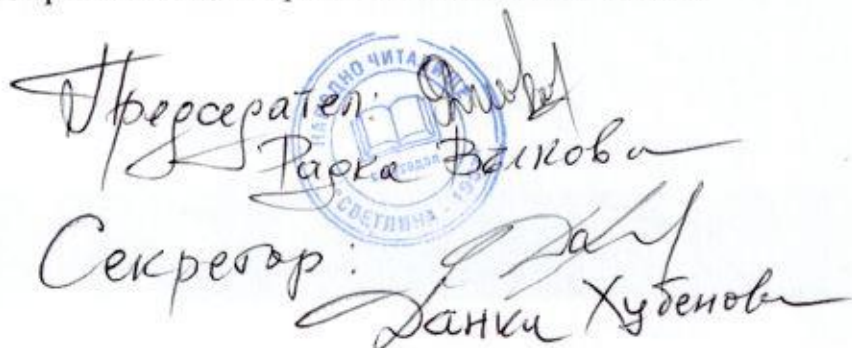 Председател:
Радка Вълкова
Секретар:
Данка Хубенова
НАРОДНО ЧИТАЛИЩЕ
"СВЕТЛИНА - 19